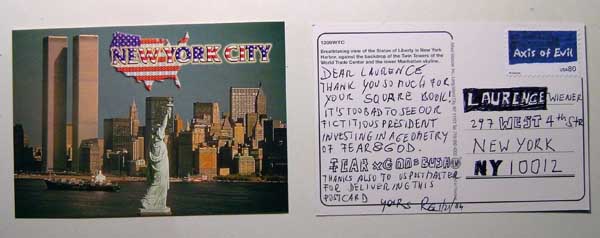 NEW YORK CITY
1200WTC
Breathtaking view of the Statue of Liberty in New York
Harbor, against the backdrop of the Twin Towers of the
World Trade Center and the lower Manhattan skyline.
Axis of Evil
USA80
DEAR LAURENCE
THANK YOU SO MUCH FOR
YOUR SQUARE BOOK!
IT'S TOO BAD TO SEE OUR
FICTITIOUS PRESIDENT
INVESTING IN A GEOMETRY
OF FEAR & GOD.
FEAR × GOD =
THANKS ALSO TO US POSTMASTER
FOR DELIVERING THIS
POSTCARD
YOURS
LAURENCE WEINER
297 WEST 4th STR
NEW YORK
NY 10012